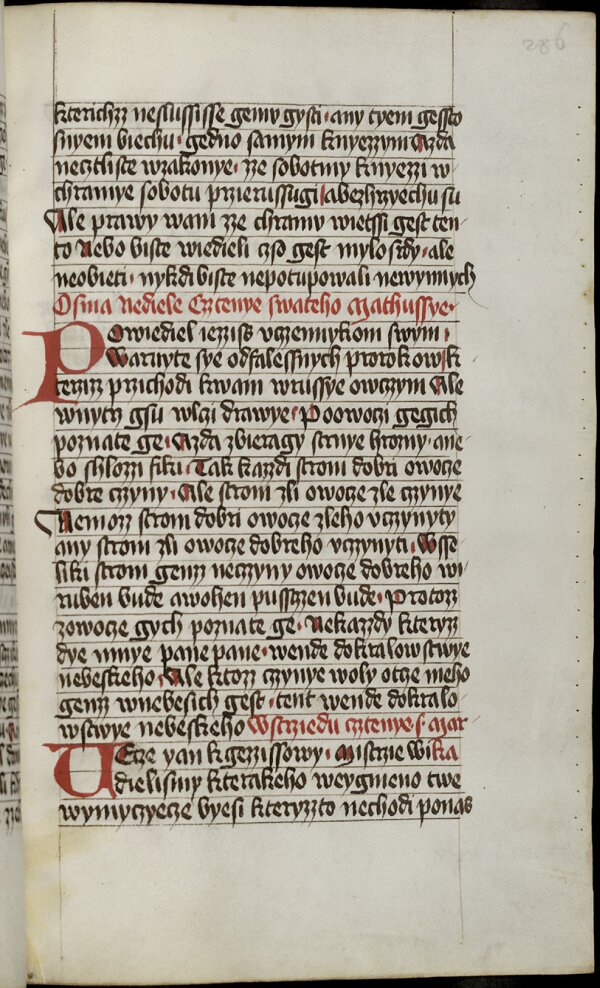 236
kterichzz neslussisse gemv gysti · any tyem gessto
snyem biechu · gedno samym knyezzym Azda
necztliste wzakonye · zze sobotmy knyezzi w
chramye sobotu przierussugi abezhrzyechu su
Ale prawy wam zze chramv wietssi gest ten-
to Nebo biste wiedieli czso gest mylosrdy · ale
neobieti · nykdi biste nepotupowali newynnych
Osma Nediele Cztenye swateho Mathussye ·
Powiediel iezziss vczennykom swym ·
Waruyte sye odfalessnych prorokow k
terziz przichodi kwam wrussye owczym Ale
wnytrz gsu wlczi drawye · Poowoczi gegich
poznate ge · Azda zbieragy strnye hrozny · ane
bo shlozzi fiki · Tak kazzdi strom dobri owocze
dobre czzyny · Ale strom zli owocze zle czzynye
Nemozz strom dobri owocze zleho vczynyty
any strom zli owocze dobreho vczzynyti · Wsse
liki strom genzz neczzyny owocze dobreho wi
ruben bude awohen pusstzzen bude · Protozz
zowocze gych poznate ge · Nekazzdy kteryzz
dye mnye pane pane · wende dokralowstwye
nebeskeho · Ale ktozz czzynye woly otcze meho
genzz wnebesich gest · tent wende dokralo-
wstwye nebeskeho Wstrziedu cztenye s Mar
Vecze yan kgezzissowy · Mistrzie Wi ka
dielismy kterakeho weygmeno twe
wymyczyecze byesi kteryzzto nechodi ponas